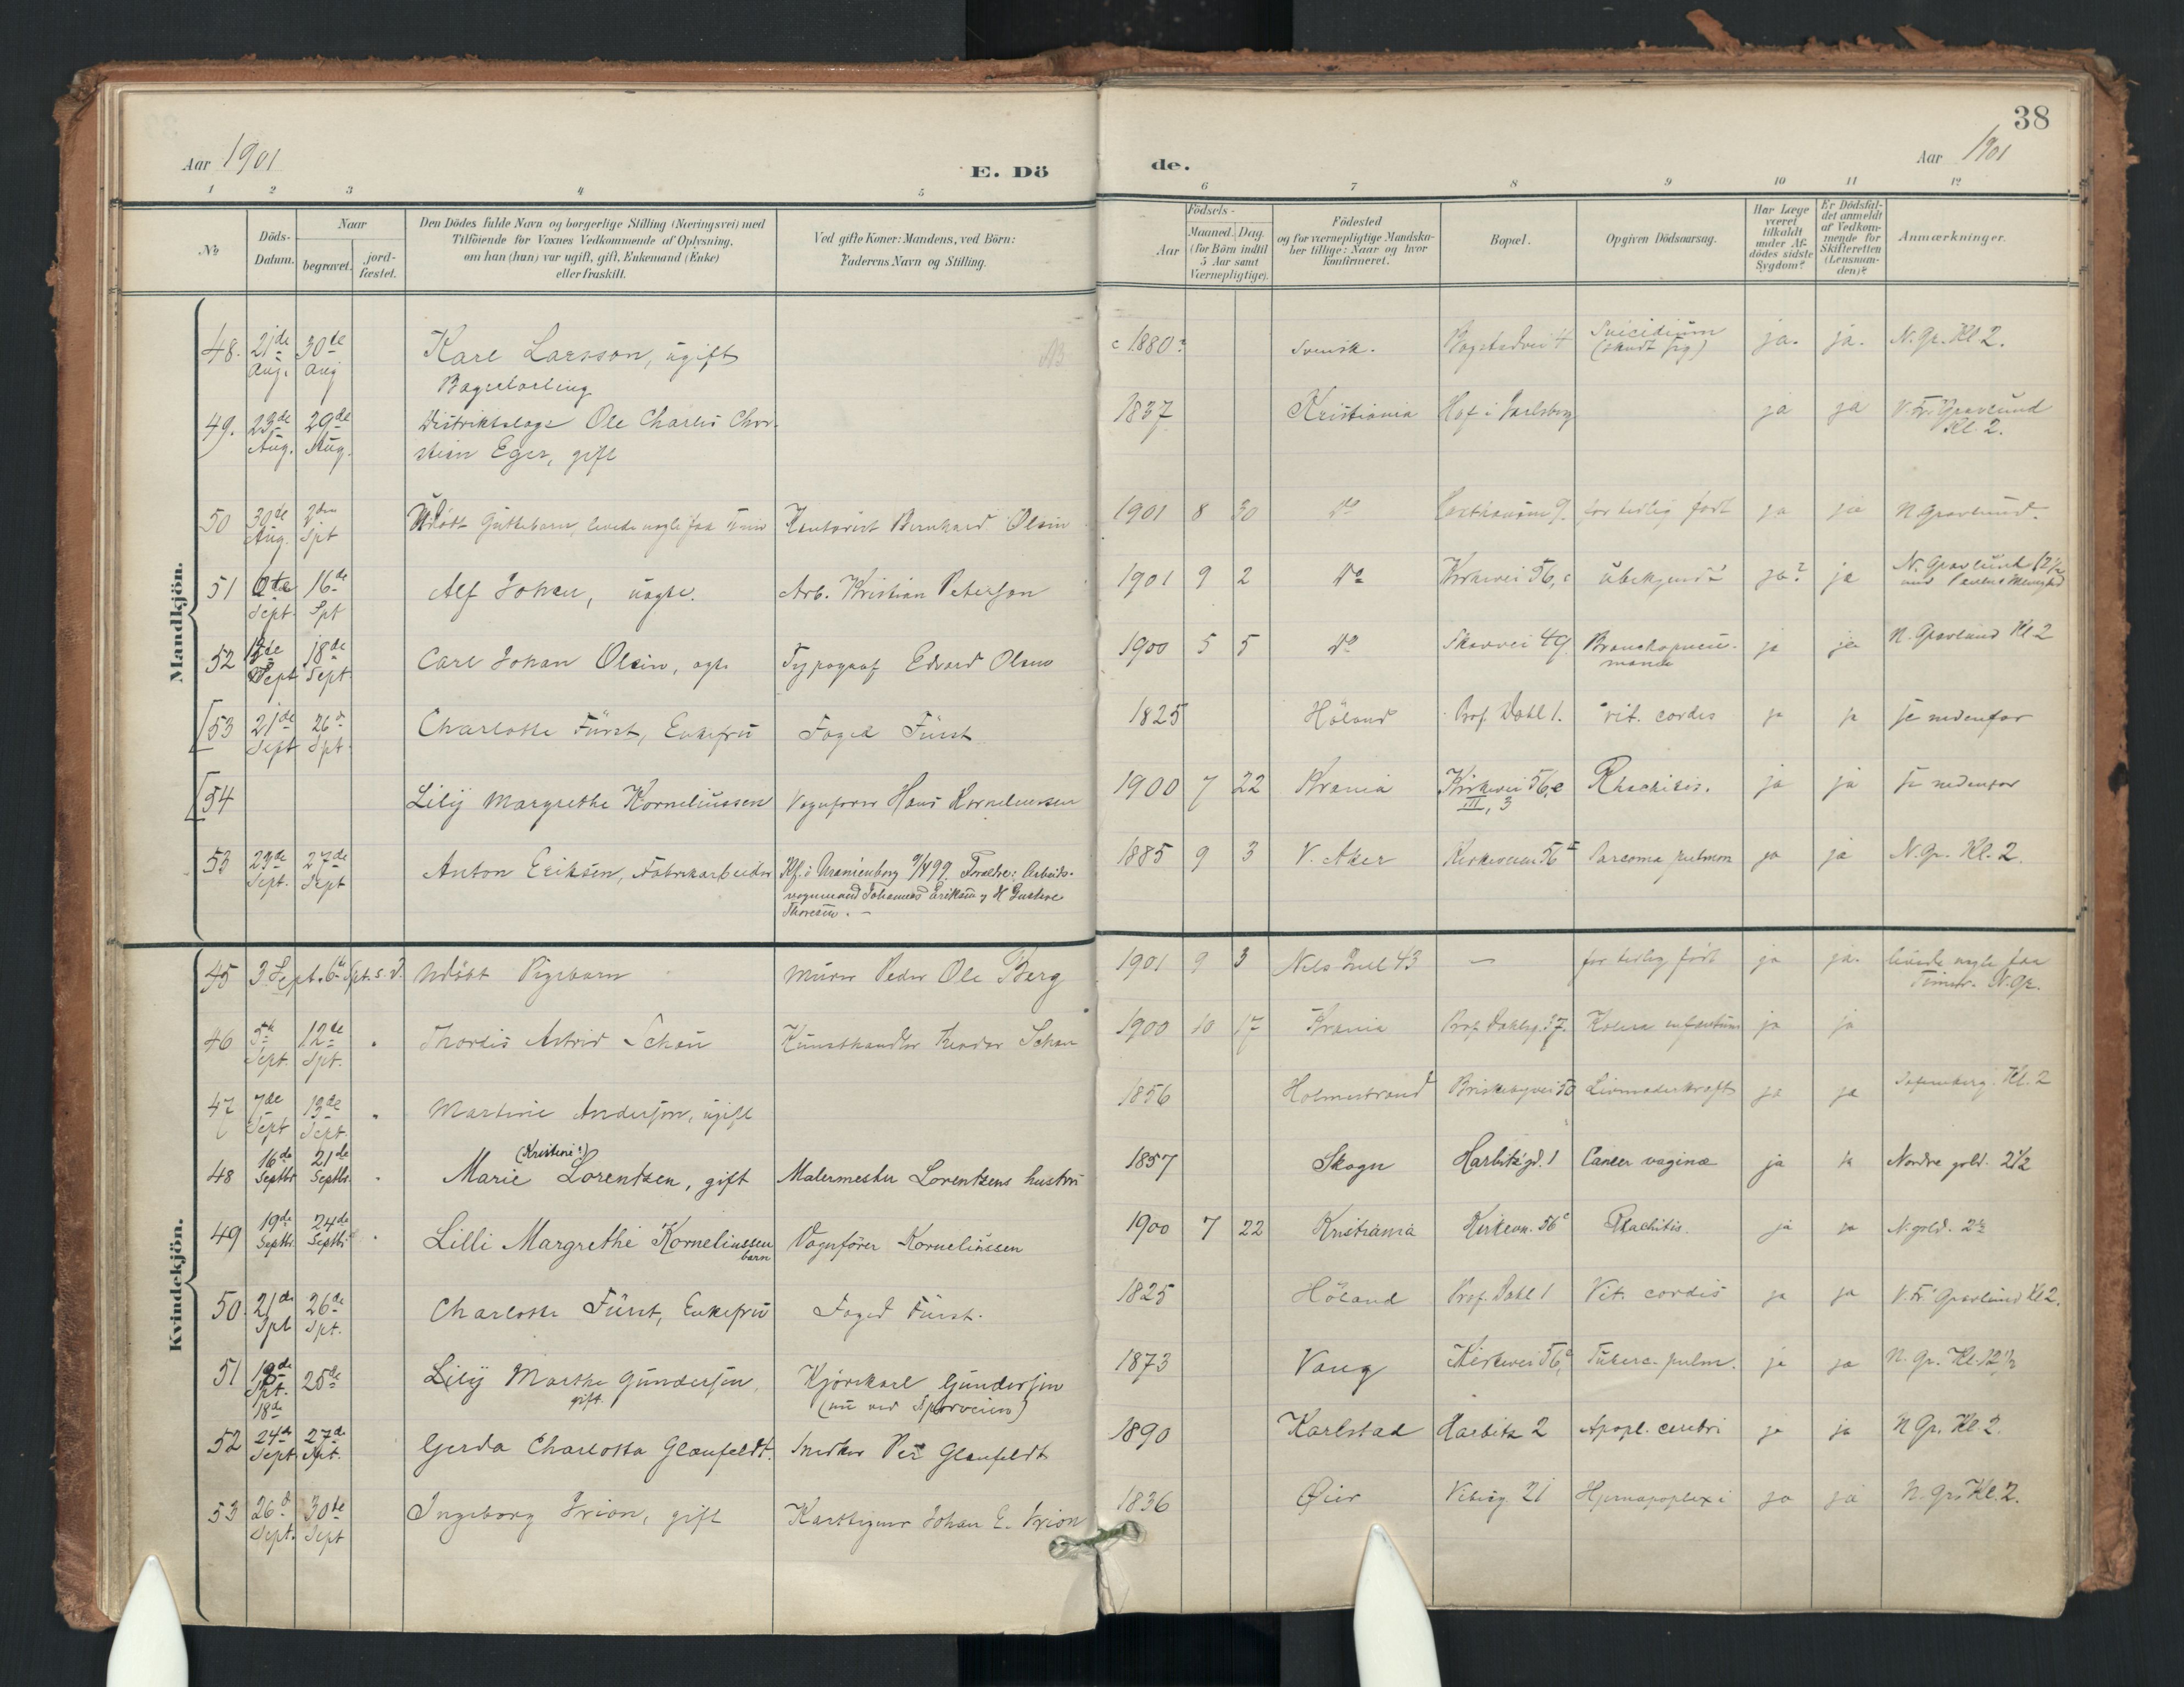 38
Aar 1901
E. Dö
de.
Aar 1901
1 2 3 4 5 6 7 8 9 10 11 12
No
Döds-Datum.
Naar
begravet.
jord-fæstet.
Den Dödes fulde Navn og borgerlige Stilling (Næringsvei) med
Tilföiende for Voxnes Vedkommende af Oplysning,
om han (hun) var ugift, gift, Enkemand (Enke)
eller fraskilt.
Ved gifte Koner: Mandens, ved Börn:
Faderens Navn og Stilling.
Födsels-
Aar
Maaned. Dag.
(for Börn indtil
5 Aar samt
Værnepligtige).
Födested
og for værnepligtige Mandska-
ber tillige: Naar og hvor
konfirmeret.
Bopæl.
Opgiven Dödsaarsag.
Har Læge
været
tilkaldt
under Af-
dödes sidste
Sygdom?
Er Dödsfal-
det anmeldt
af Vedkom-
mende for
Skifteretten
(Lensman-
den)?
Anmærkninger.
Mandkjön.
48. 21de Aug. 30te Aug Karl Larsson, ugift c 1880? Svensk. Bogstadvei 4 Suicidium ja. ja. N. Gr. Kl 2.
(skudt sig)
49. 23de Aug. 29de Aug. Distriktslæge Ole Charles Chri- 1837 Kristiania Hof i Jarlsberg ja ja V. Fr. Gravlund
stian Eger, gift Kl. 2.
50 30te Aug. 2den Spt Udöbt Guttebarn, levede nogle faa Kontorist Bernhard Olsen 1901 8 30 do for tidlig födt ja ja N Gravlund.
51 Sept. 16de Spt Alf Johan, uægte. Arb. Kristian Peterson 1901 9 2 do Kirkevei 56, c ubekjendt ja? ja N. Gravlund 12½
52 Sept 18de Sept. Carl Johan Olsen, ægte Typograf Edvard Olsen 1900 5 5 do 49 Bronchopneu- ja ja N. Gravlund Kl 2
monia
[53 21de Sept 26de Spt. Charlotte Fürst, Enkefru Foged Fürst 1825 Höland Prof. Dahl 1. Vit. cordis ja ja se nedenfor
[54 Lily Margrethe Korneliussen Vognfører Hans Korneliussen 1900 7 22 Krania Kirkevei 56, c Rhachitis. ja ja se nedenfor
III, 3
53 23de Sept. 27de Sept Anton Eriksen, Fabrikarbeider Kf. i Uranienborg Forældre: Arbeids- 1885 9 3 V. Aker 56 Sarcoma pulmon ja ja N. Gr. Kl. 2.
vognmand Johannes Eriksen og H Gustave
Thoresen. -
Kvindekjön.
45 3 Sept. 6te Spt. s. d. Udöbt Pigebarn Murer Peder Ole Berg 1901 9 3 Nels Juel 43 - for tidlig födt ja ja. levede nogle faa
Timer. N. Gr.
46 5te Sept. 12de Spt. " Thordis Astrid Schou Kunsthandler Schou 1900 10 17 Krania Prof. Dahlsg. 37. Kolera infantum ja ja
47 7de Sept 13de Sept. " Martine Anderson, ugift 1856 Holmestrand Briskebyvei 50 Livmoderkræft ja ja Kl. 2
(Kristine?)
48 16de Septbr 21de Septbr. " Marie Lorentzen, gift Malermester Lorentzens hustru 1857 Skogn Harbitz'gd. 1 Cancer vaginæ ja ja Nordre gvld. 2½
49 19de Septbr. 24de Septbr " Lilli Margrethe Korneliussen Vognförer Korneliussen 1900 7 22 Kristiania Kirkevn. 56c Rhachitis. ja ja N. gvld. 2½
barn
50 21de Spt 26de Spt. Charlotte Fürst, Enkefru Foged Fürst. 1825 Höland Prof. Dahl 1 Vit. cordis ja ja V. Fr. Gravlund Kl 2.
51 Spt. 18de 25de Lily Marthe Gundersen, Kjörekarl Gundersen 1873 Vang Kirkevei 56, c Tuberc. pulm. ja ja N. Gr. Kl. 12½
gift. (nu ved Sporveien)
52 24de Sept. 27de Spt. Gerda Charlotta Glanfeldt. Snedker Per Glanfeldt 1890 Karlstad Harbitz 2 Apopl. cerebri ja ja N Gr. Kl. 2.
53 26de Sept. 30te Sept Ingeborg Irion, gift Johan E. Irion 1836 Öier Vibesg. 21 Hjerneapoplexi ja ja N. Gr. Kl. 2.